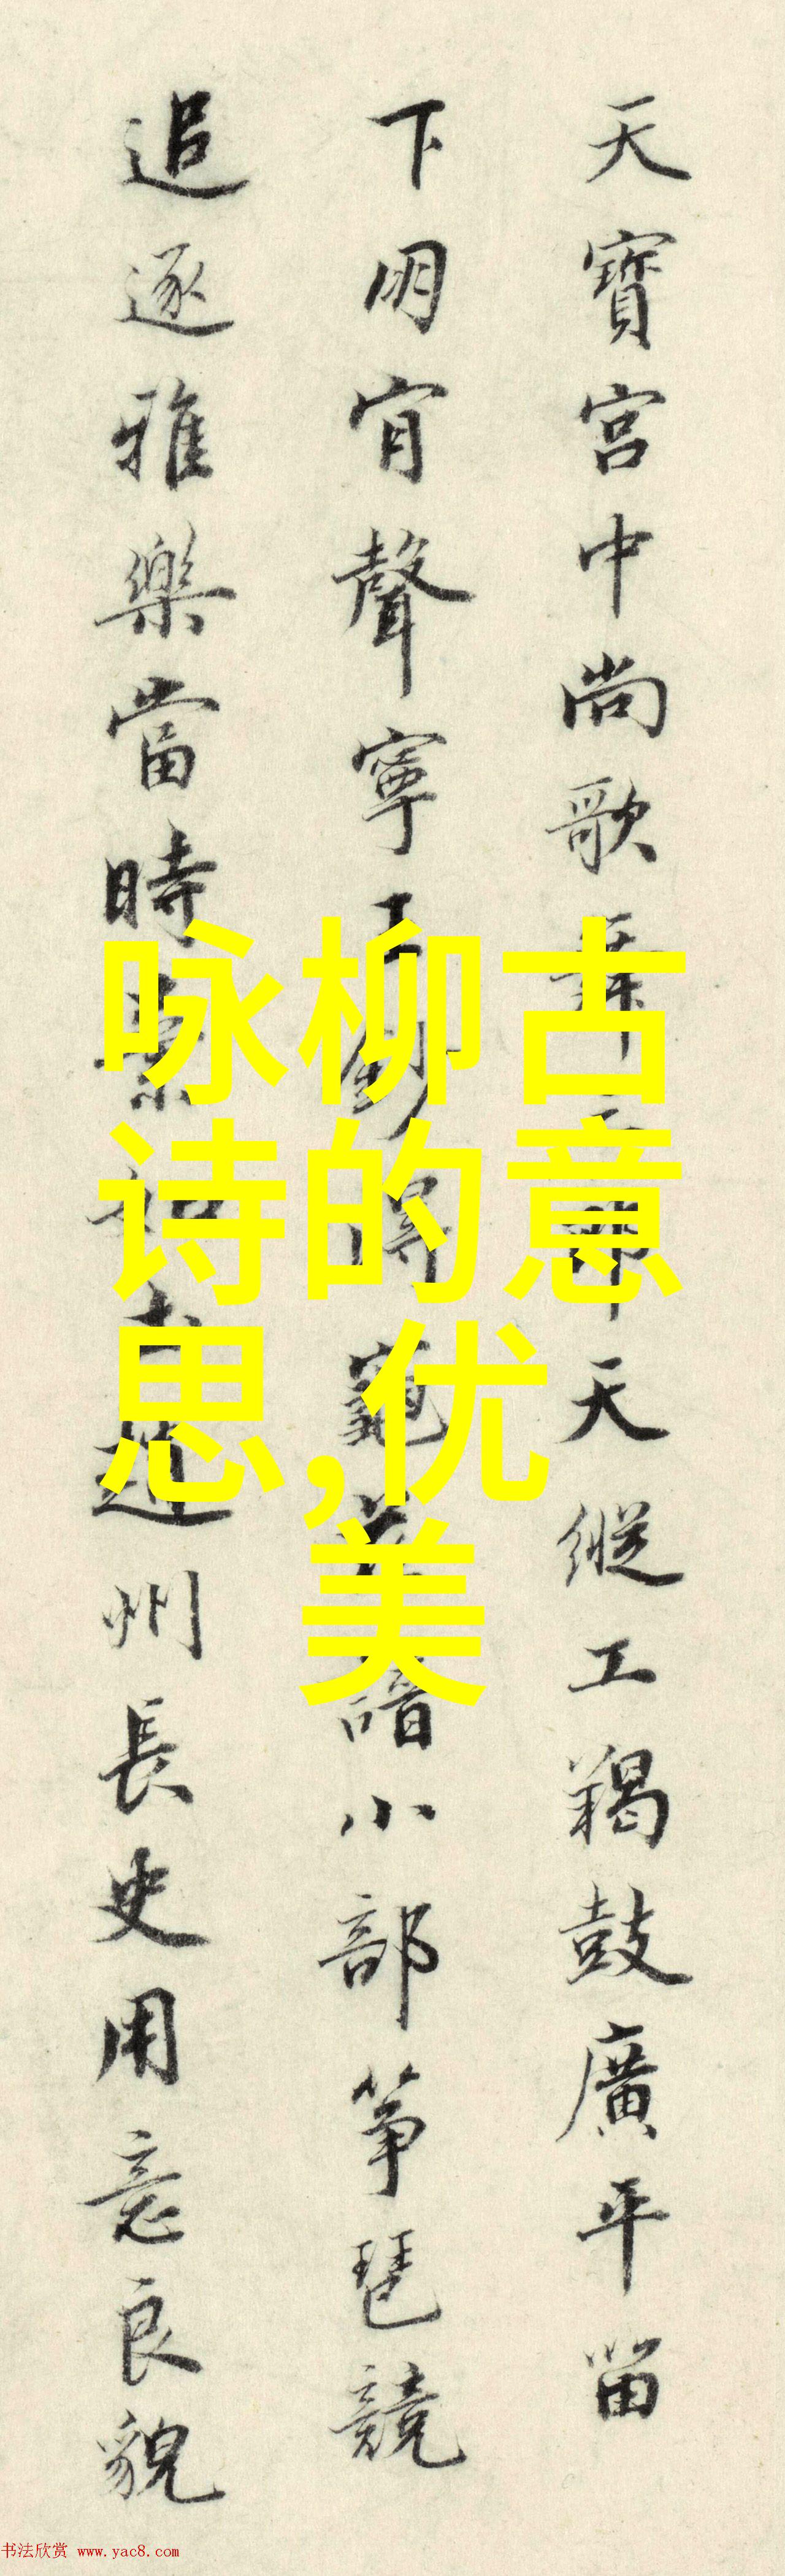 天寶宮中尚歌舞天縱工羯鼓廣平留
下開宵聲寧王得龜語小部箏琶競
追逐雅樂當時趙州長史用意良貌
咏柳古
诗的意
思,优
美
书法欣赏 www.yac8.com